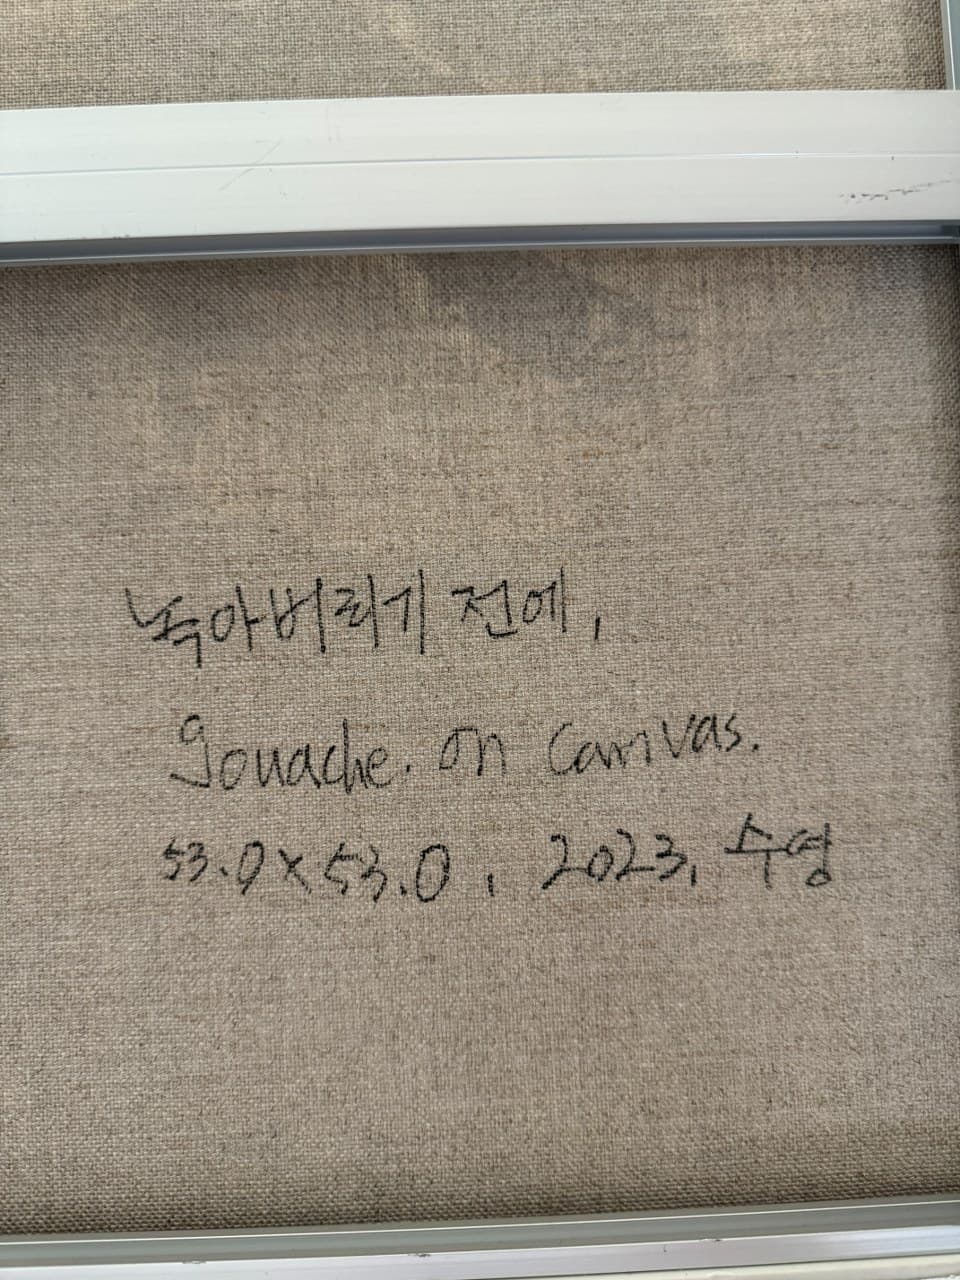 녹아버리기 전에,
gouache. on canvas.
53.0 x 53.0, 2023, 수영